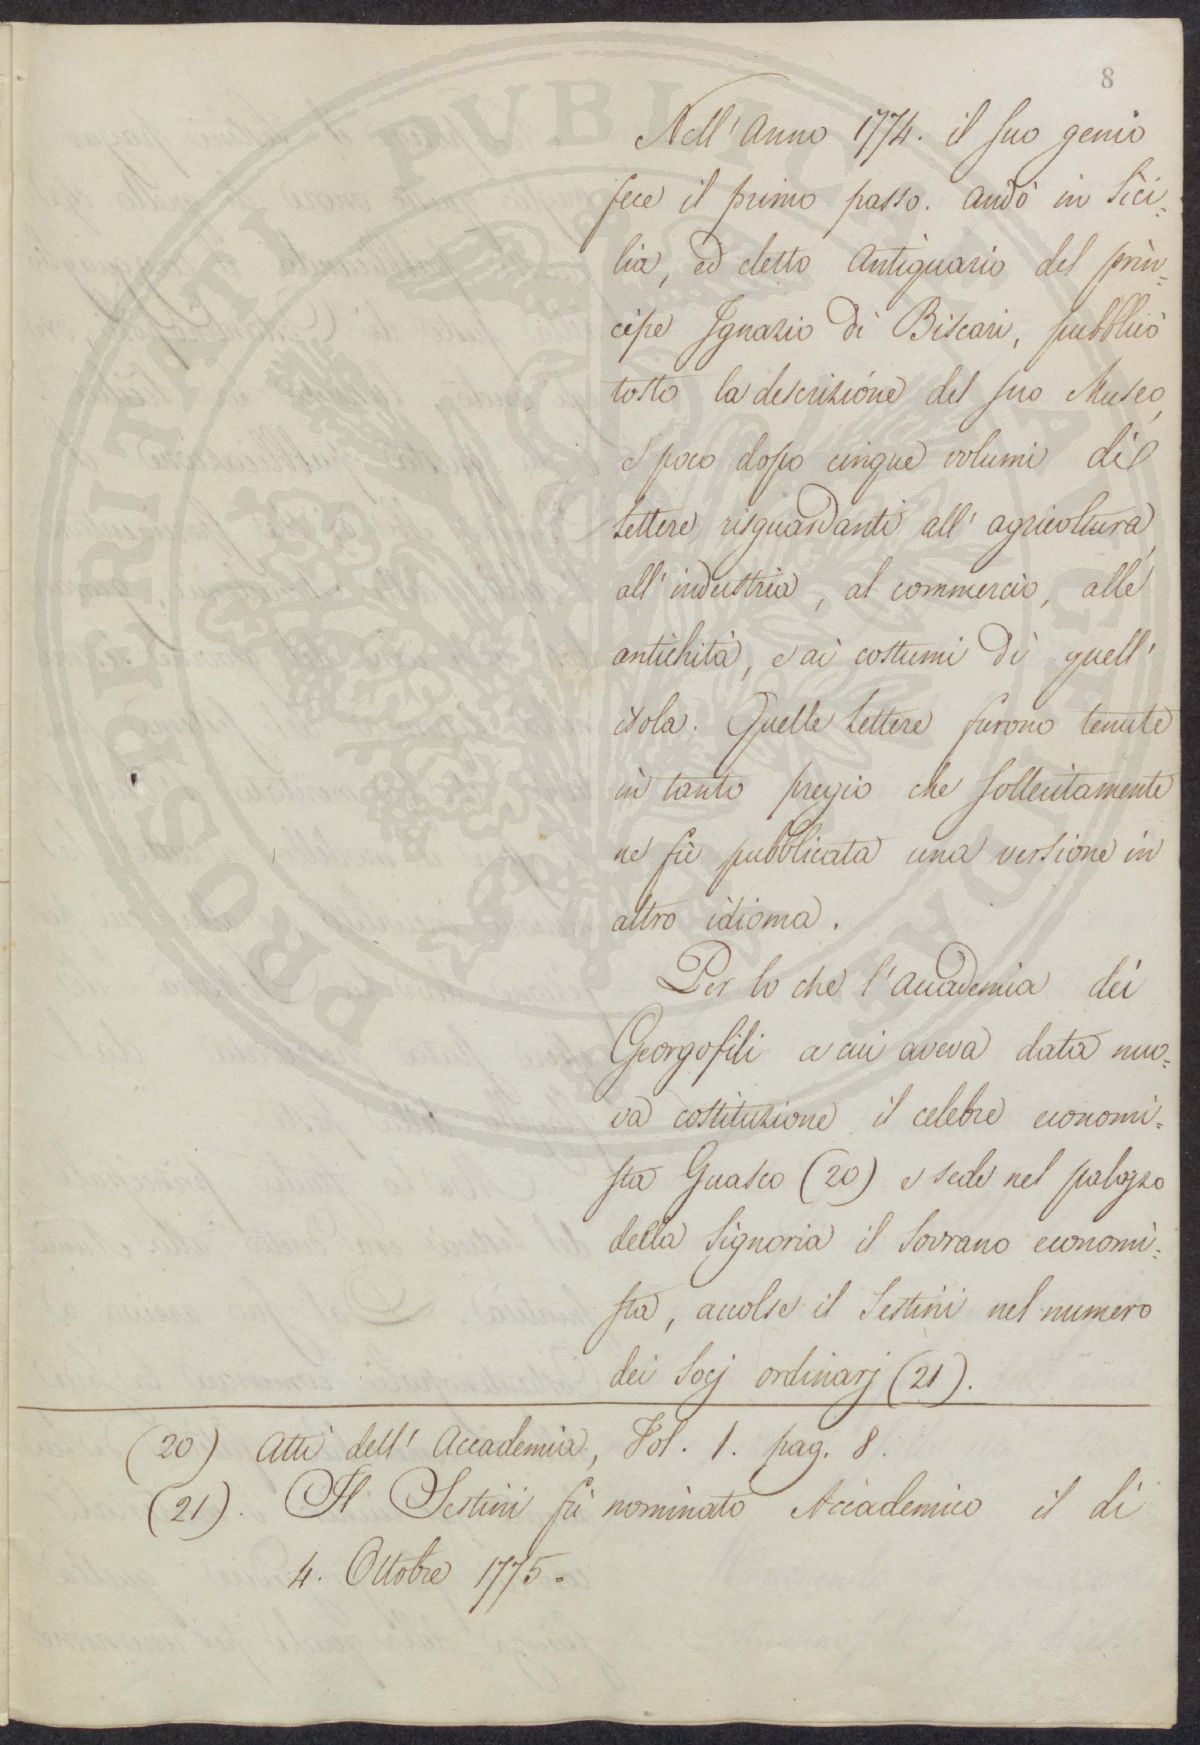 8
Nell' Anno 1774. il suo genio
fece il primo passo. Andò in Sici-
lia, ed eletto Antiquario del prin-
cipe Ignazio di Biscari, pubblicò
tosto la descrizione del suo Museo,
e poco dopo cinque volumi di
Lettere risguardanti all' agricoltura,
all' industria, al commercio, alle
antichità, e ai costumi di quell'
isola. Quelle Lettere furono tenute
in tanto pregio che sollecitamente
ne fù pubblicata una versione in
altro idioma.
Per lo che l' Accademia dei
Georgofili a cui aveva data nuo-
va costituzione il celebre economi-
sta Guasco (20) e sede nel palazzo
della Signoria il Sovrano economi-
sta, accolse il Sestini nel numero
dei Socj ordinarj (21).
(20) Atti dell' Accademia, Vol. 1. pag. 8.
(21). Il Sestini fù nominato Accademico il dì
4. Ottobre 1775.
PROSPERITATI PVBLICAE AVGENDAE